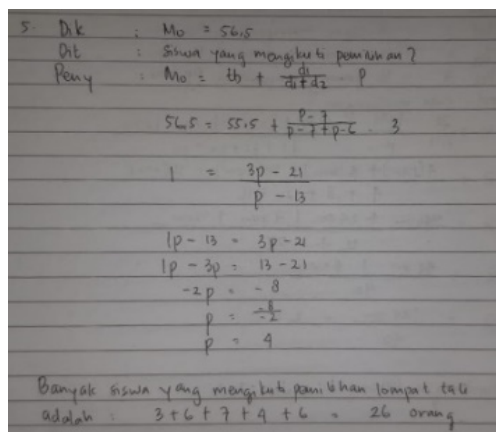 5. Dik : Mo = 56,5
Dit : Siswa yang mengikuti pemilihan?
Peny : Mo = tb + d1/d1+d2 . P
56,5 = 55,5 + p-7/p-7+p-6 . 3
1 = 3p - 21/p - 13
1p - 13 = 3p - 21
1p - 3p = 13 - 21
-2p = -8
p = -8/-2
p = 4
Banyak siswa yang mengikuti pemilihan lompat tali
adalah : 3+6+7+4+6 = 26 orang